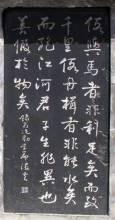 假輿馬者非利足矣而致
千里假舟楫者非能水矣
而絕江河君子生非異也
善假於物矣